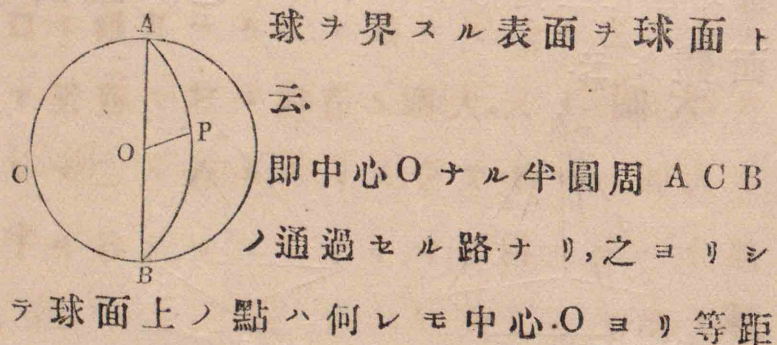 A
球ヲ界スル表面ヲ球面ト
云.
P
O
C
即中心Oナル半圓周ACB
ノ通過セル路ナリ,之ヨリシ
B
テ球面上ノ點ハ何レモ中心Oヨリ等距